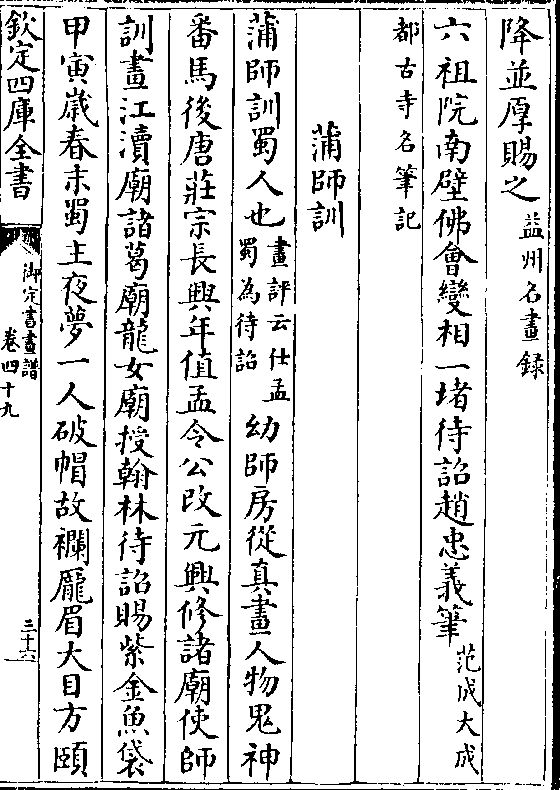 降並厚賜之益州名畫録
六祖院南壁佛會變相一堵待詔趙忠義筆范成大成
都古寺名筆記
蒲師訓
蒲師訓蜀人也畫評云仕孟蜀為待詔幼師房從真畫人物鬼神
番馬後唐莊宗長興年值孟令公改元興修諸廟使師
訓畫江瀆廟諸葛廟龍女廟授翰林待詔賜紫金魚袋
甲寅嵗春末蜀主夜夢一人破帽故襴龎眉大目方頤
欽定四庫全書
御定書畫譜
卷四十九
三十六